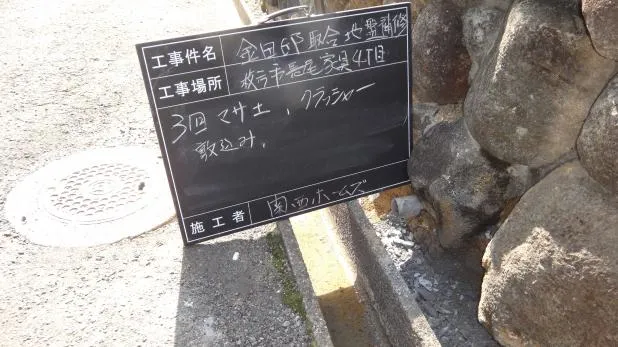 工事件名 金田邸取合地盤補修
工事場所 枚方市長尾家具4丁目
3回 マサ土、クラッシャー
敷込み。
施工者 関西ホームズ